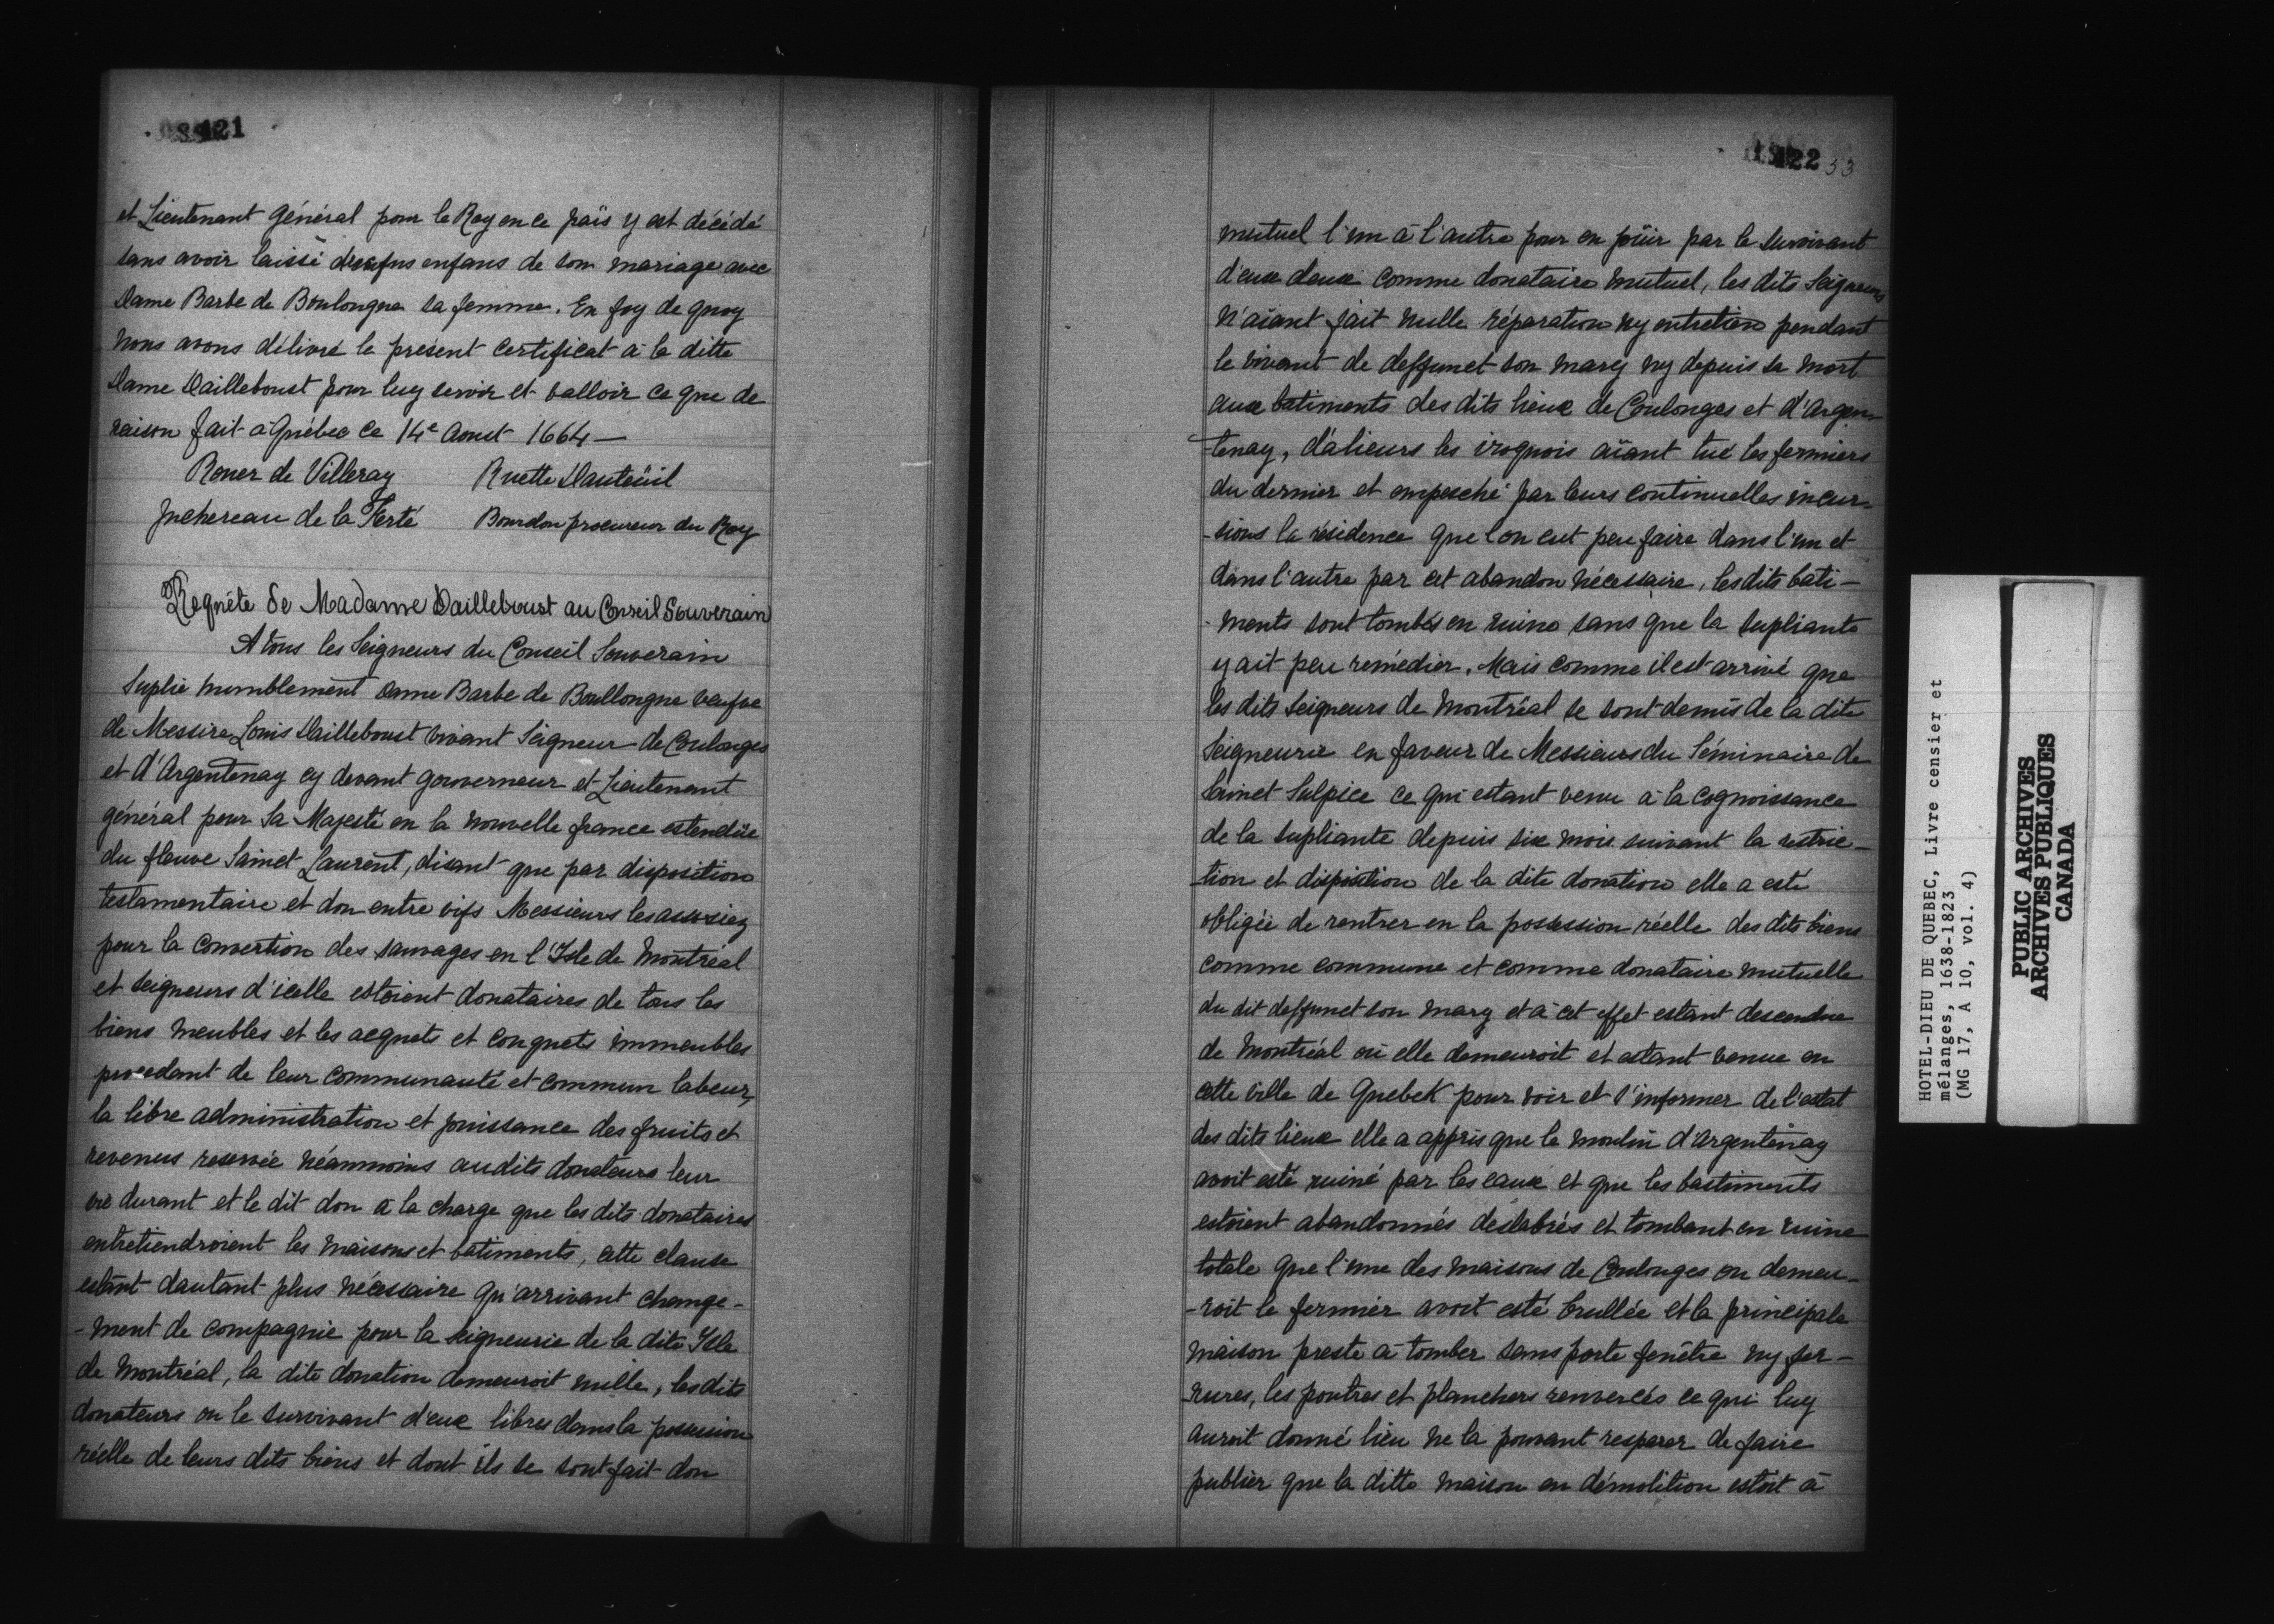 121
et Lieutenant général pour le Roy en ce païs y est décédé
sans avoir laissé enfans de son mariage avec
Dame Barbe de Boulongne sa femme. En foy de quoy
nous avons délivré le présent certificat à la ditte
Dame Dailleboust pour luy servir et valloir ce que de
raison fait à Québec ce 14e Aoust 1664 —
Rouer de Villeray Ruette Dauteüil
Juchereau de la Ferté Bourdon procureur du Roy
Requête de Madame Dailleboust au Conseil Souverain
A tous les Seigneurs du Conseil Souverain
Suplie humblement Dame Barbe de Boullongne veufve
de Messire Louis Dailleboust vivant Seigneur de Coulonges
et d'Argentenay cy devant gouverneur et Lieutenant
général pour Sa Majesté en la nouvelle france estendüe
du fleuve Sainct Laurent, disant que par disposition
testamentaire et don entre vifs Messieurs les associez
pour la convertion des sauvages en l'Isle de Montréal
et seigneurs d'icelle estoient donataires de tous les
biens meubles et les acquets et conquets immeubles
procedant de leur communauté et commun labeur,
la libre administration et jouissance des fruits et
revenus reservée néanmoins audits donateurs leur
vie durant et le dit don à la charge que les dits donataires
entretiendroient les maisons et batiments, cette clause
estant dautant plus nécessaire qu'arrivant change-
-ment de compagnie pour la seigneurie de la dite Isle
de Montréal, la dite donation demeuroit nulle, les dits
donateurs ou le survivant d'eux libres dans la possession
réelle de leurs dits biens et dont ils se sont fait don
122 33
mutuel l'un à l'autre pour en joüir par le survivant
d'eux deux comme donataire mutuel, les dits Seigneurs
n'aiant fait nulle réparation ny entretien pendant
le vivant de deffunct son mary ny depuis sa mort
aux batiments des dits lieux de Coulonges et d'Argen-
-tenay, d'alieurs les iroquois aiant tué les fermiers
du dernier et empesché par leurs continuelles incur-
-sions la résidence que l'on eut peu faire dans l'un et
dans l'autre par cet abandon nécessaire, les dits bati-
-ments sont tombés en ruine sans que la supliante
y ait peu remédier. Mais comme il est arrivé que
les dits Seigneurs de Montréal se sont demis de la dite
Seigneurie en faveur de Messieurs du Séminaire de
Sainct Sulpice ce qui estant venu à la cognoissance
de la supliante depuis six mois suivant la restric-
-tion et disposition de la dite donation elle a esté
obligée de rentrer en la possession réelle des dits biens
comme commune et comme donataire mutuelle
du dit deffunct son mary et à cet effet estant descendue
de Montréal où elle demeuroit et estant venue en
cette ville de Quebek pour voir et s'informer de l'estat
des dits lieux elle a appris que le moulin d'Argentenay
avoit esté ruiné par les eaux et que les bastiments
estoient abandonnés deslabrés et tombant en ruine
totale que l'une des maisons de Coulonges ou demeu-
-roit le fermier avoit esté brullée et la principale
maison preste à tomber sans porte fenêtre ny fer-
-rures, les poutres et planchers renversés ce qui luy
auroit donné lieu ne la pouvant resparer de faire
publier que la ditte maison en démolition estoit à
HOTEL-DIEU DE QUEBEC, Livre censier et
mélanges, 1638-1823
(MG 17, A 10, vol. 4)
PUBLIC ARCHIVES
ARCHIVES PUBLIQUES
CANADA